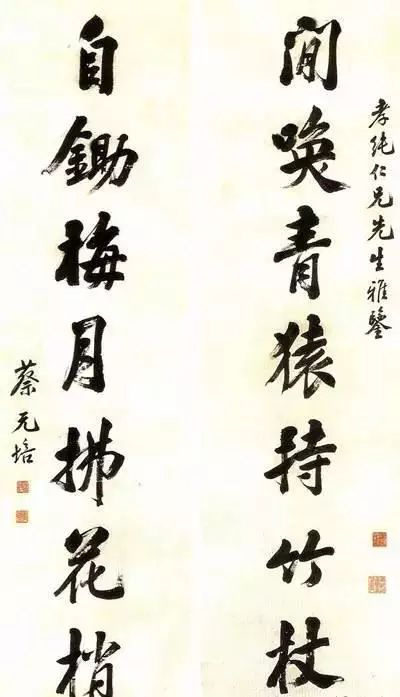 孝纯仁兄先生雅鑒
閒喚青猿持竹杖
自鋤梅月拂花梢
蔡元培